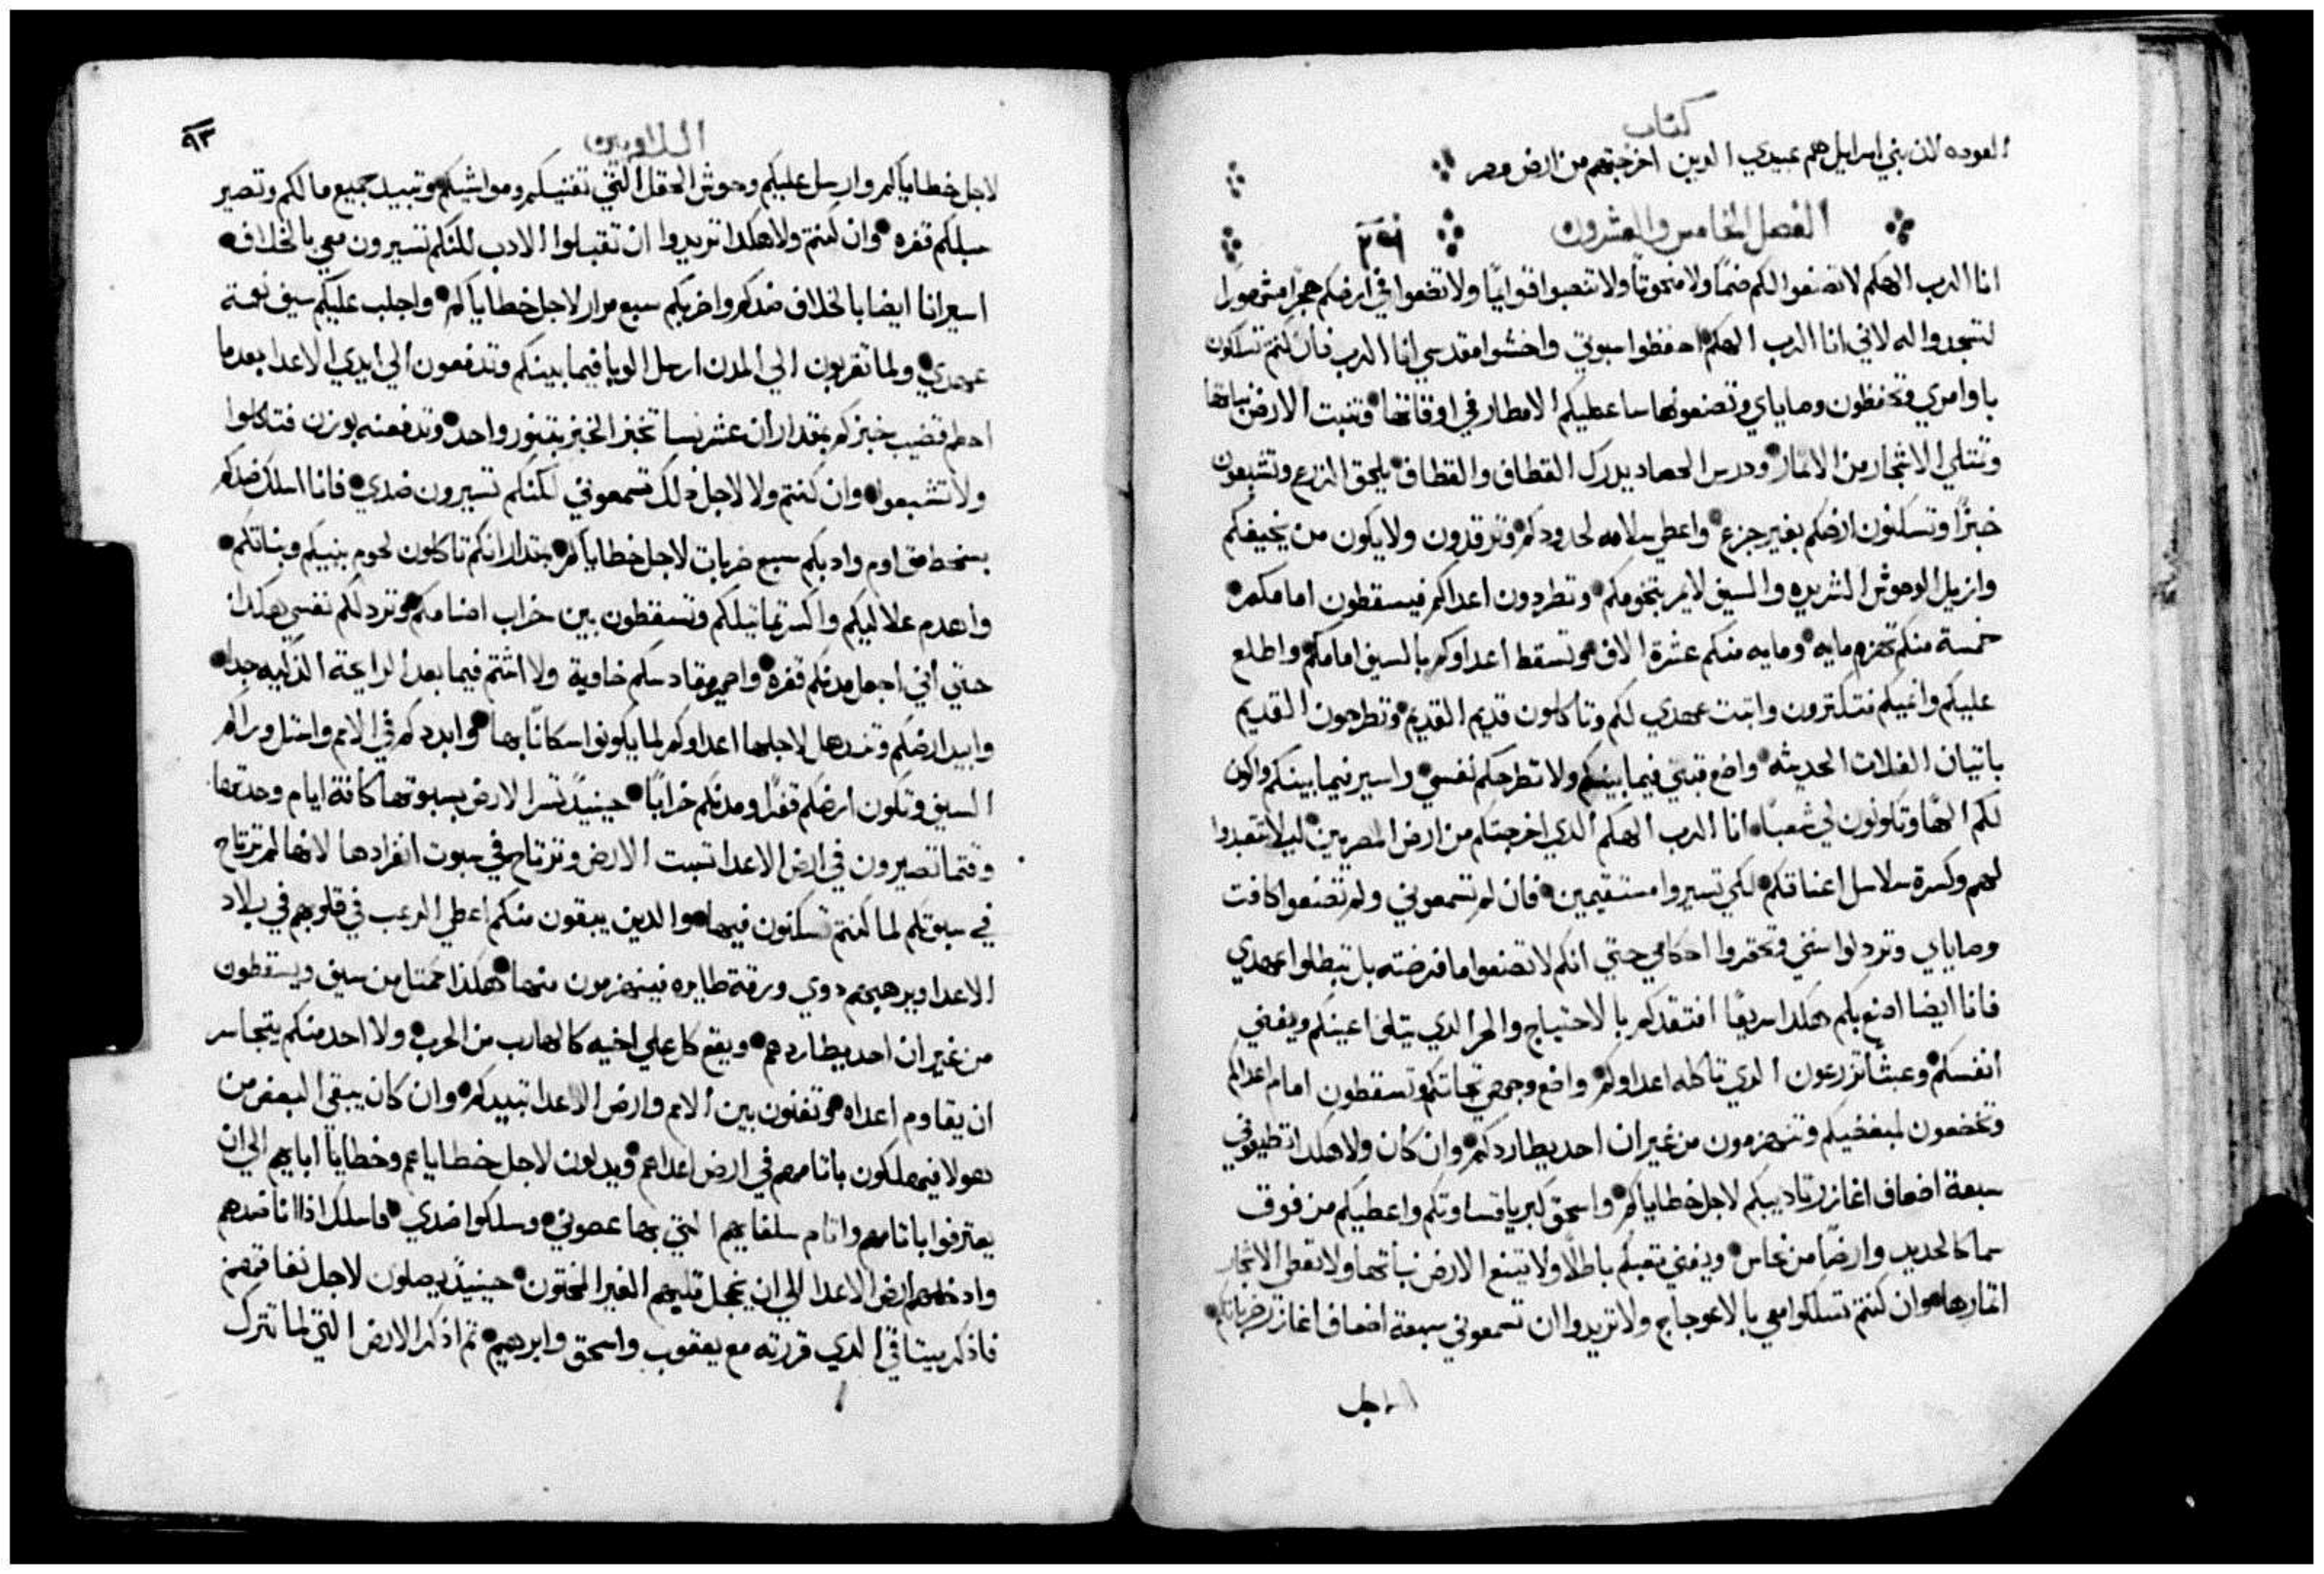 كتاب
العوده لان بني اسرايل هم عبيدي الدين اخرجتهم من ارض مصر
الفصل الخامس والعشرون
انا الرب الهكم لا تصنعوا لكم صنمًا ولا منحوتًا ولا تنصبوا قوايمًا ولا تضعوا في ارضكم حجرًا مشهورًا
لتسجدوا له لاني انا الرب الهكم احفظوا سبوتي واخشوا مقدسي انا الرب فان كنتم تسلكون
باوامري وتحفظون وصاياي وتصنعونها ساعطيكم الامطار في اوقاتها وتنبت الارض نباتها
وتمتلي الاشجار من الاثمار ودرس الحصاد يدرك القطاف والقطاف يلحق الزرع وتشبعون
خبزًا وتسكنون ارضكم بغير جزع واعطي سلامه لحدودكم وترقدون ولا يكون من يخيفكم
وازيل الوحوش الشريره والسيف لا يمر بتخومكم وتطردون اعداكم فيسقطون امامكم
خمسة منكم تهزم مايه ومايه منكم عشرة الاف وتسقط اعداوكم بالسيف امامكم واطلع
عليكم وانميكم فتتكثرون واثبت عهدي لكم وتاكلون قديم القديم وتطرحون القديم
باتيان الغلات الحديثه واضع قبتي فيما بينكم ولا تطرحكم نفسي واسير فيما بينكم واكون
لكم الهًا وتكونون لي شعبًا انا الرب الهكم الدي اخرجتكم من ارض المصريين ليلا تتعبدوا
لهم وكسرة سلاسل اعناقكم لكي تسيروا مستقيمين فان لم تسمعوني ولم تصنعوا كافت
وصاياي وتردلوا سنني وتحتقروا احكامي حتي انكم لا تصنعوا ما فرضته بل تبطلوا عهدي
فانا ايضا اصنع بكم هكدا سريعًا افتقدكم بالاحتياج والحر الدي يتلف اعينكم ويفني
انفسكم وعبثًا تزرعون الدي تاكله اعداوكم واضع وجهي تجاتكم وتسقطون امام اعداكم
وتخضعون لمبغضيكم وتنهزمون من غير ان احد يطاردكم وان كان ولا هكدا تطيعوني
سبعة اضعاف اغازر تاديبكم لاجل خطاياكم واسحق كبريا قساوتكم واعطيكم من فوق
سما كالحديد وارضًا من نحاس ويفني تعبكم باطلًا ولا تنبع الارض نباتها ولا تعطي الاشجار
اثمارها وان كنتم تسلكوا معي بالاعوجاج ولا تريدوا ان تسمعوني سبعة اضعاف اغازر ضرباتكم
لاجل
اللاويين
٩٣
لاجل خطاياكم وارسل عليكم وحوش الحقل التي تفنيكم ومواشيكم وتبيد جميع مالكم وتصير
سبلكم قفره وان كنتم ولا هكدا تريدوا ان تقبلوا الادب لكنكم تسيرون معي بالخلاف
اسير انا ايضا بالخلاف ضدكم واضربكم سبع مرار لاجل خطاياكم واجلب عليكم سيف نقمة
عهدي ولما تهربون الي المدن ارسل الوبا فيما بينكم وتدفعون الي ايدي الاعدا بعد ما
احطم قضيب خبزكم بمقدار ان عشر نسا تخبز الخبز بتنور واحد وتدفعنه بوزن فتاكلوا
ولا تشبعوا وان كنتم ولا لاجل دلك تسمعوني لكنكم تسيرون ضدي فانا اسلك ضدكم
بسخط مقاوم وادبكم سبع ضربات لاجل خطاياكم بمقدار انكم تاكلون لحوم بنيكم وبناتكم
واهدم علاليكم واكسر تماثيلكم وتسقطون بين خراب اصنامكم وتردلكم نفسي هكدا
حتي أني اجعل مدنكم قفره واصير مقادسكم خاوية ولا اشتم فيما بعد الرايحة الذكيه جدا
وابيد ارضكم وتندهل لاجلها اعداوكم لما يكونوا سكانًا بها وابددكم في الامم واستل وراكم
السيف وتكون ارضكم قفرًا ومدنكم خرابًا حينيدٍ تسر الارض بسبوتها كافة ايام وحدتها
وقتما تصيرون في ارض الاعدا تسبت الارض وترتاح في سبوت انفرادها لانها لم ترتاح
في سبوتكم لما كنتم تسكنون فيها والدين يبقون منكم اعطي الرعب في قلوبهم في بلاد
الاعدا ويرهبهم دوي ورقة طايره فينهزمون منها هكذا كمثل من سيف ويسقطون
من غير ان احد يطاردهم ويقع كل علي اخيه كالهارب من الحرب ولا احد منكم يتجاسر
ان يقاوم اعداه وتفنون بين الامم وارض الاعدا تبيدكم وان كان يبقي البعض من
هولا فيهلكون باثامهم في ارض اعداهم ويدلون لاجل خطاياهم وخطايا اباهم الي ان
يعترفوا باثامهم واثام سلفاهم التي بها عصوني وسلكوا ضدي فاسلك اذا انا ضدهم
وادخلهم ارض الاعدا الي ان يخجل قلبهم الغير المختون حينيدٍ يصلون لاجل نفاقهم
فاذكر ميثاقي الدي قررته مع يعقوب واسحق وابرهيم ثم اذكر الارض التي لما تترك